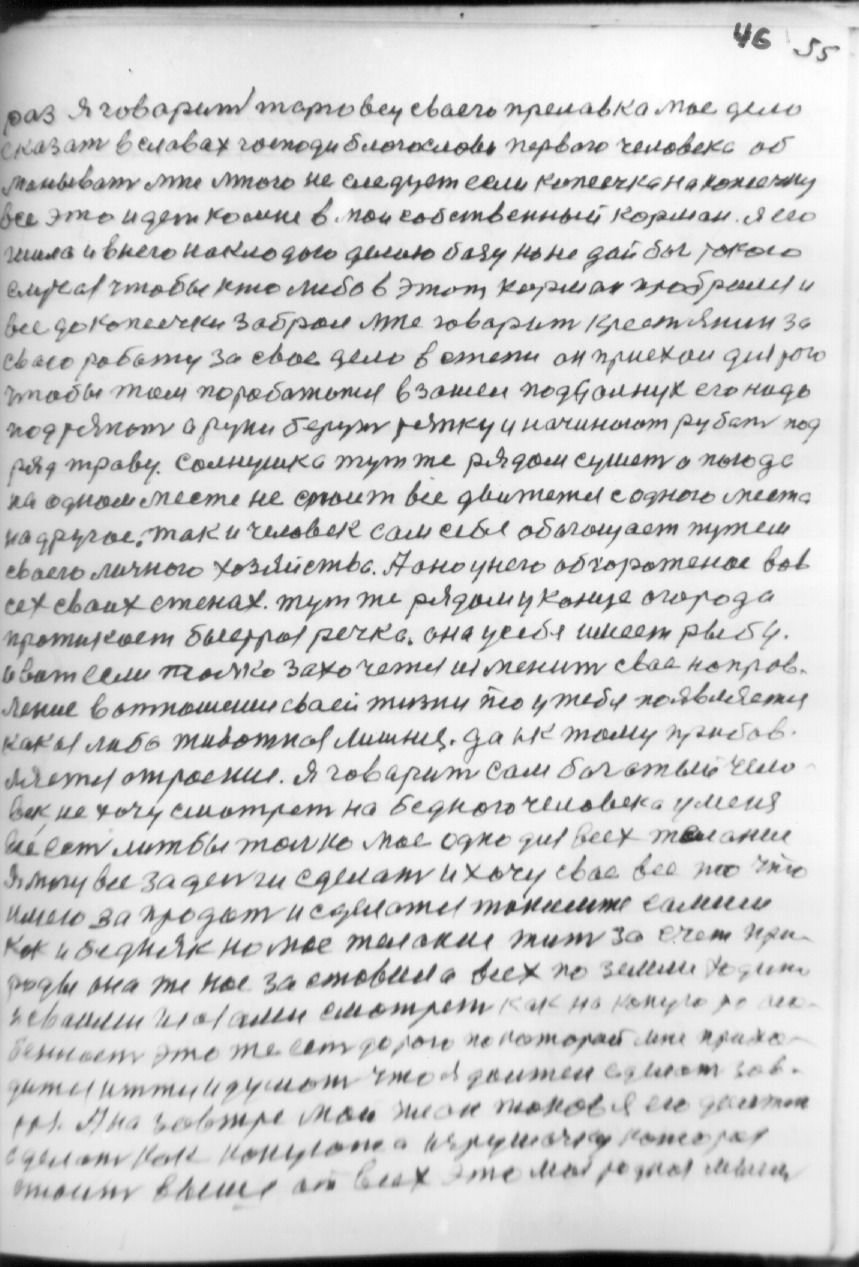 46 55
раз я говарит тарговец сваего прелавка мае дело
сказат в славах господи благослови первого человека об
маныват мне много не следует если копеечка на копеечку
все это идет комне в мои собственный карман. я его
шила и внего накладаю делаю базу но не дай бог токого
случая чтобы кто либо в этот карман пробрался и
все до копеечки забрал мне говарит крестянин за
сваю работу за свое дело в степи он приехал для того
чтобы там поработатся взошел подсолнух его надо
подтяпат а руки берут тяпку и начинают рубат под
ряд траву. Солнушка тут же рядом сушет а погода
на одном месте не стоит все движется с одного места
на другое. так и человек сам себя обогощает путем
сваего личного хозяйства. А оно у него обгороженое вов
сех сваих стенах. тут же рядом у конце огорода
протикает быстрая речка. она у себя имеет рыбу.
а вот если только захочется изменит свае направ-
ление в отношении сваей жизни то у тебя появляется
какая либа животная лишняя. да и к тому прибав-
ляется строение. Я говарит сам богатый чело-
век не хочу смотрет на бедного человека у меня
все ест лишбы толко мое одно для всех желание
Я могу все за денги сделат и хочу свае все то что
имею запродат и сделатся таким же самим
как и бедняк но мое желание жит за счет при-
роды она же нас заставила всех по земли ходит
и сваими глазами смотрет как на какую то осо-
беност это же ест дорога по каторай мне прихо-
дится итти и думат что я должен сделат зав-
тра. А на завтре мой план таков я его должен
сделат как какую то игрушачку каторая
стоит выше от всех это мая родная мысл